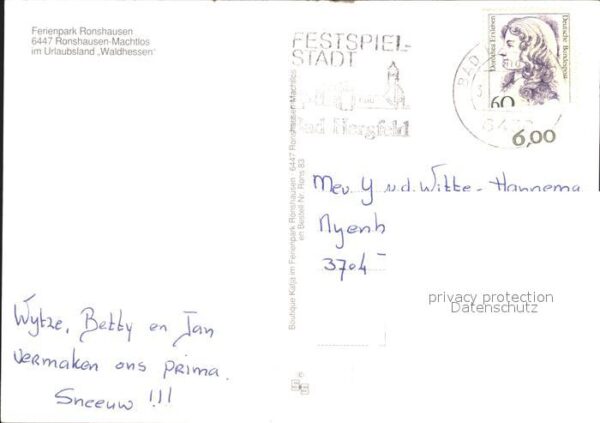 Ferienpark Ronshausen
6447 Ronshausen-Machtlos
im Urlaubsland „Waldhessen"
FESTSPIEL-
STADT
Bad Hersfeld
BAD
Dorothea Erxleben
Deutsche Bundespost
60
6,00
Boutique Katja im Ferienpark Ronshausen 6447 Ronshausen-Machtlos
en Bestell Nr. Rons 83
Mev Y v.d. Witte-Hannema
Nyenh
3704
privacy protection
Datenschutz
Wytze, Betty en Jan
vermaken ons prima.
Sneeuw !!!